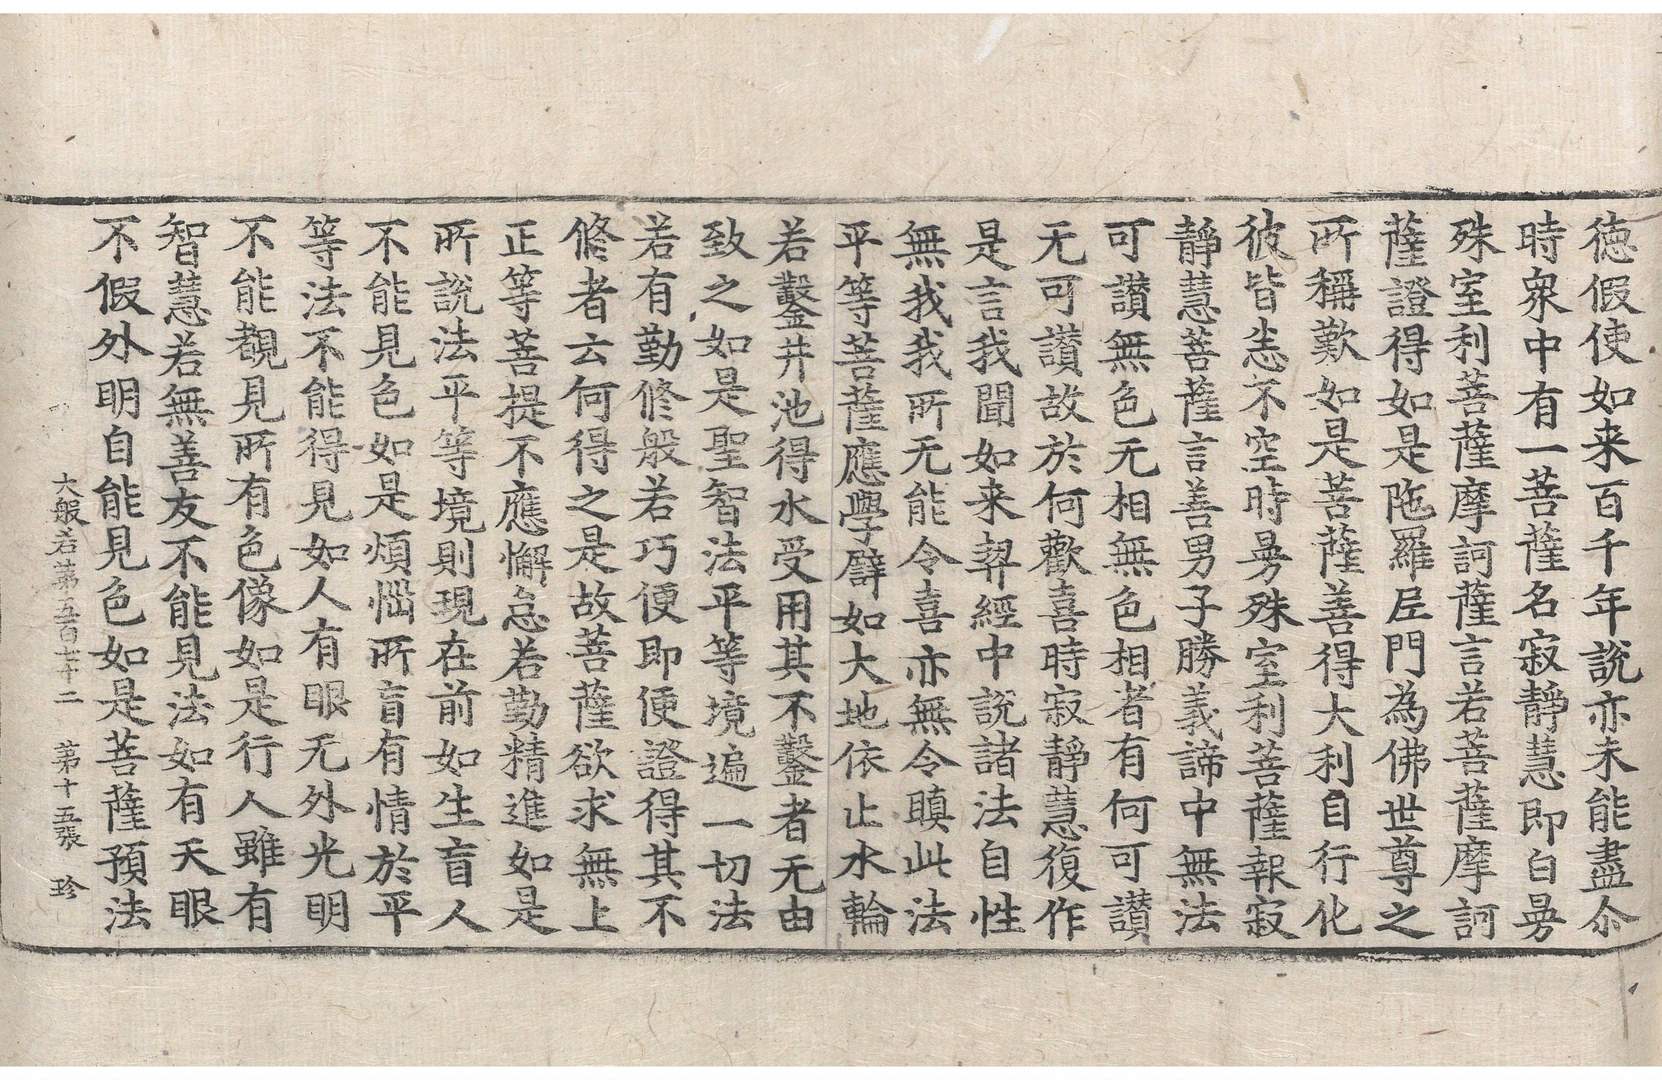 徳假使如来百千年說亦未能盡尒
時衆中有一菩薩名寂靜慧即白曼
殊室利菩薩摩訶薩言若菩薩摩訶
薩證得如是陁羅尼門為佛世尊之
所稱歎如是菩薩善得大利自行化
彼皆悉不空時曼殊室利菩薩報寂
靜慧菩薩言善男子勝義諦中無法
可讃無色无相無色相者有何可讃
无可讃故於何歡喜時寂靜慧復作
是言我聞如来契經中說諸法自性
無我我所无能令喜亦無令瞋此法
平等菩薩應學譬如大地依止水輪
若鑿井池得水受用其不鑿者无由
致之如是聖智法平等境遍一切法
若有勤修般若巧便即便證得其不
修者云何得之是故菩薩欲求無上
正等菩提不應懈怠若勤精進如是
所說法平等境則現在前如生盲人
不能見色如是煩惱所盲有情於平
等法不能得見如人有眼无外光明
不能覩見所有色像如是行人雖有
智慧若無善友不能見法如有天眼
不假外明自能見色如是菩薩預法
大般若第五百七十二　第十五張　珍